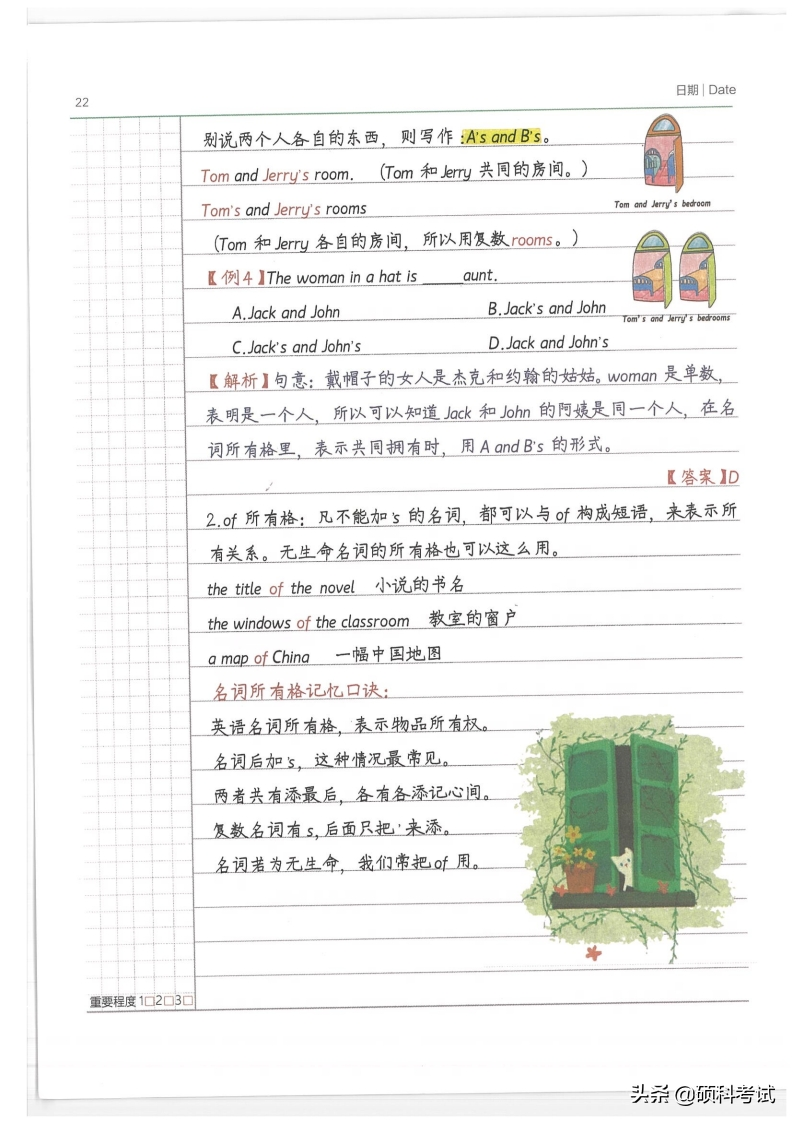 22
日期 | Date
别说两个人各自的东西，则写作：A's and B's。
Tom and Jerry's room. （Tom 和 Jerry 共同的房间。）
Tom and Jerry's bedroom
Tom's and Jerry's rooms
（Tom 和 Jerry 各自的房间，所以用复数rooms。）
【例4】The woman in a hat is _____aunt.
A.Jack and John B.Jack's and John
Tom's and Jerry's bedrooms
C.Jack's and John's D.Jack and John's
【解析】句意：戴帽子的女人是杰克和约翰的姑姑。woman 是单数，
表明是一个人，所以可以知道 Jack 和 John 的阿姨是同一个人，在名
词所有格里，表示共同拥有时，用 A and B's 的形式。
【答案】D
2.of 所有格：凡不能加's 的名词，都可以与 of 构成短语，来表示所
有关系。无生命名词的所有格也可以这么用。
the title of the novel 小说的书名
the windows of the classroom 教室的窗户
a map of China 一幅中国地图
名词所有格记忆口诀：
英语名词所有格，表示物品所有权。
名词后加's，这种情况最常见。
两者共有添最后，各有各添记心间。
复数名词有s,后面只把'来添。
名词若为无生命，我们常把of 用。
重要程度 1□2□3□
头条 @硕科考试